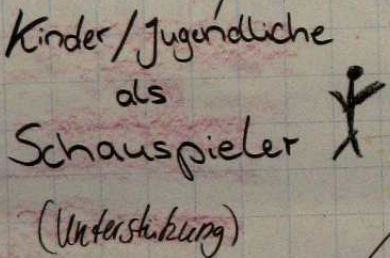 Kinder/Jugendliche
als
Schauspieler
(Unterstützung)